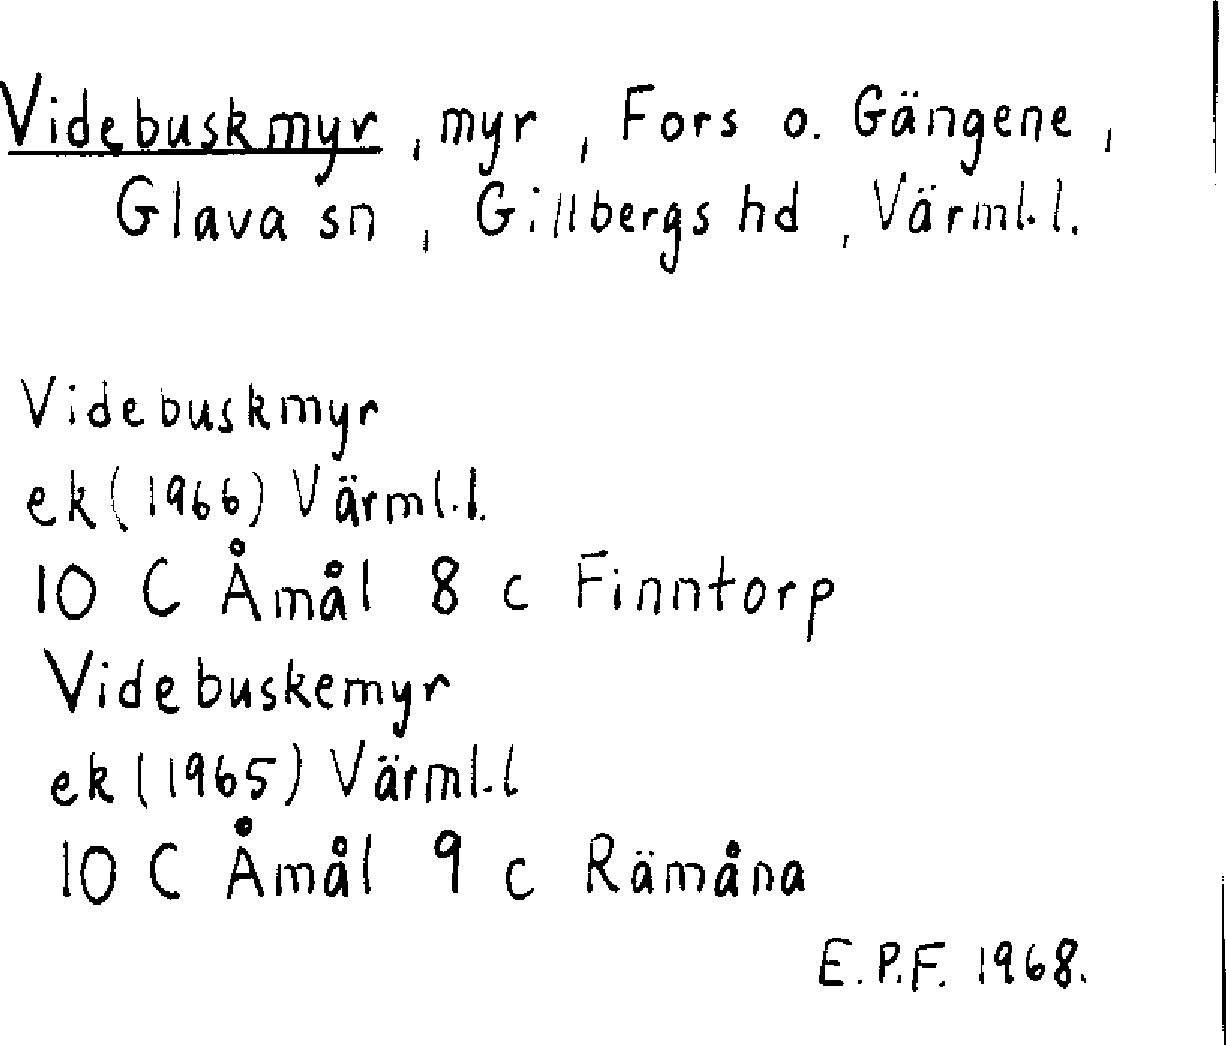 Videbuskmyr, myr, Fors o. Gängene,
Glava sn, Gillbergs hd, Värml.l.
Videbuskmyr
ek (1966) Värml.l.
10 C Åmål 8 c Finntorp
Videbuskemyr
ek (1965) Värml.l
10 C Åmål 9 c Rämåna
E.P.F. 1968.